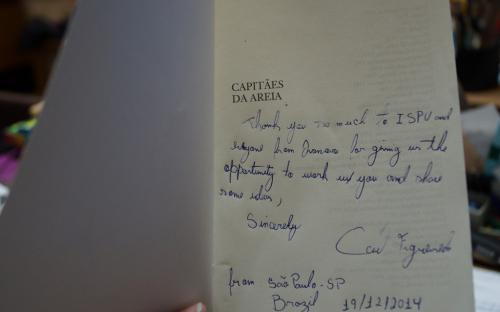 CAPITÃES
DA AREIA
Thank you so much to ISPU and
everyone from Ivanovo for giving us the
opportunity to work w/ you and share
some ideas,
Sincerely
Figueiredo
from São Paulo - SP
Brazil 19/12/2014